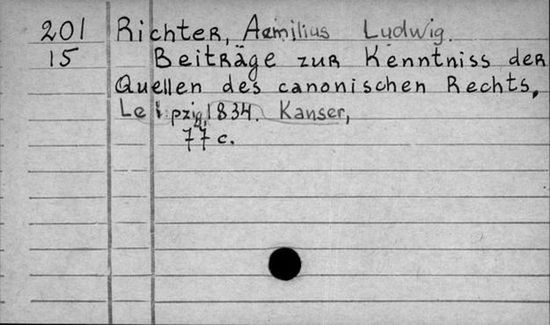 201 Richter, Aemilius Ludwig.
15 Beiträge zur Kenntniss der
Quellen des canonischen Rechts,
Leipzig, 1834. Kanser,
77 c.